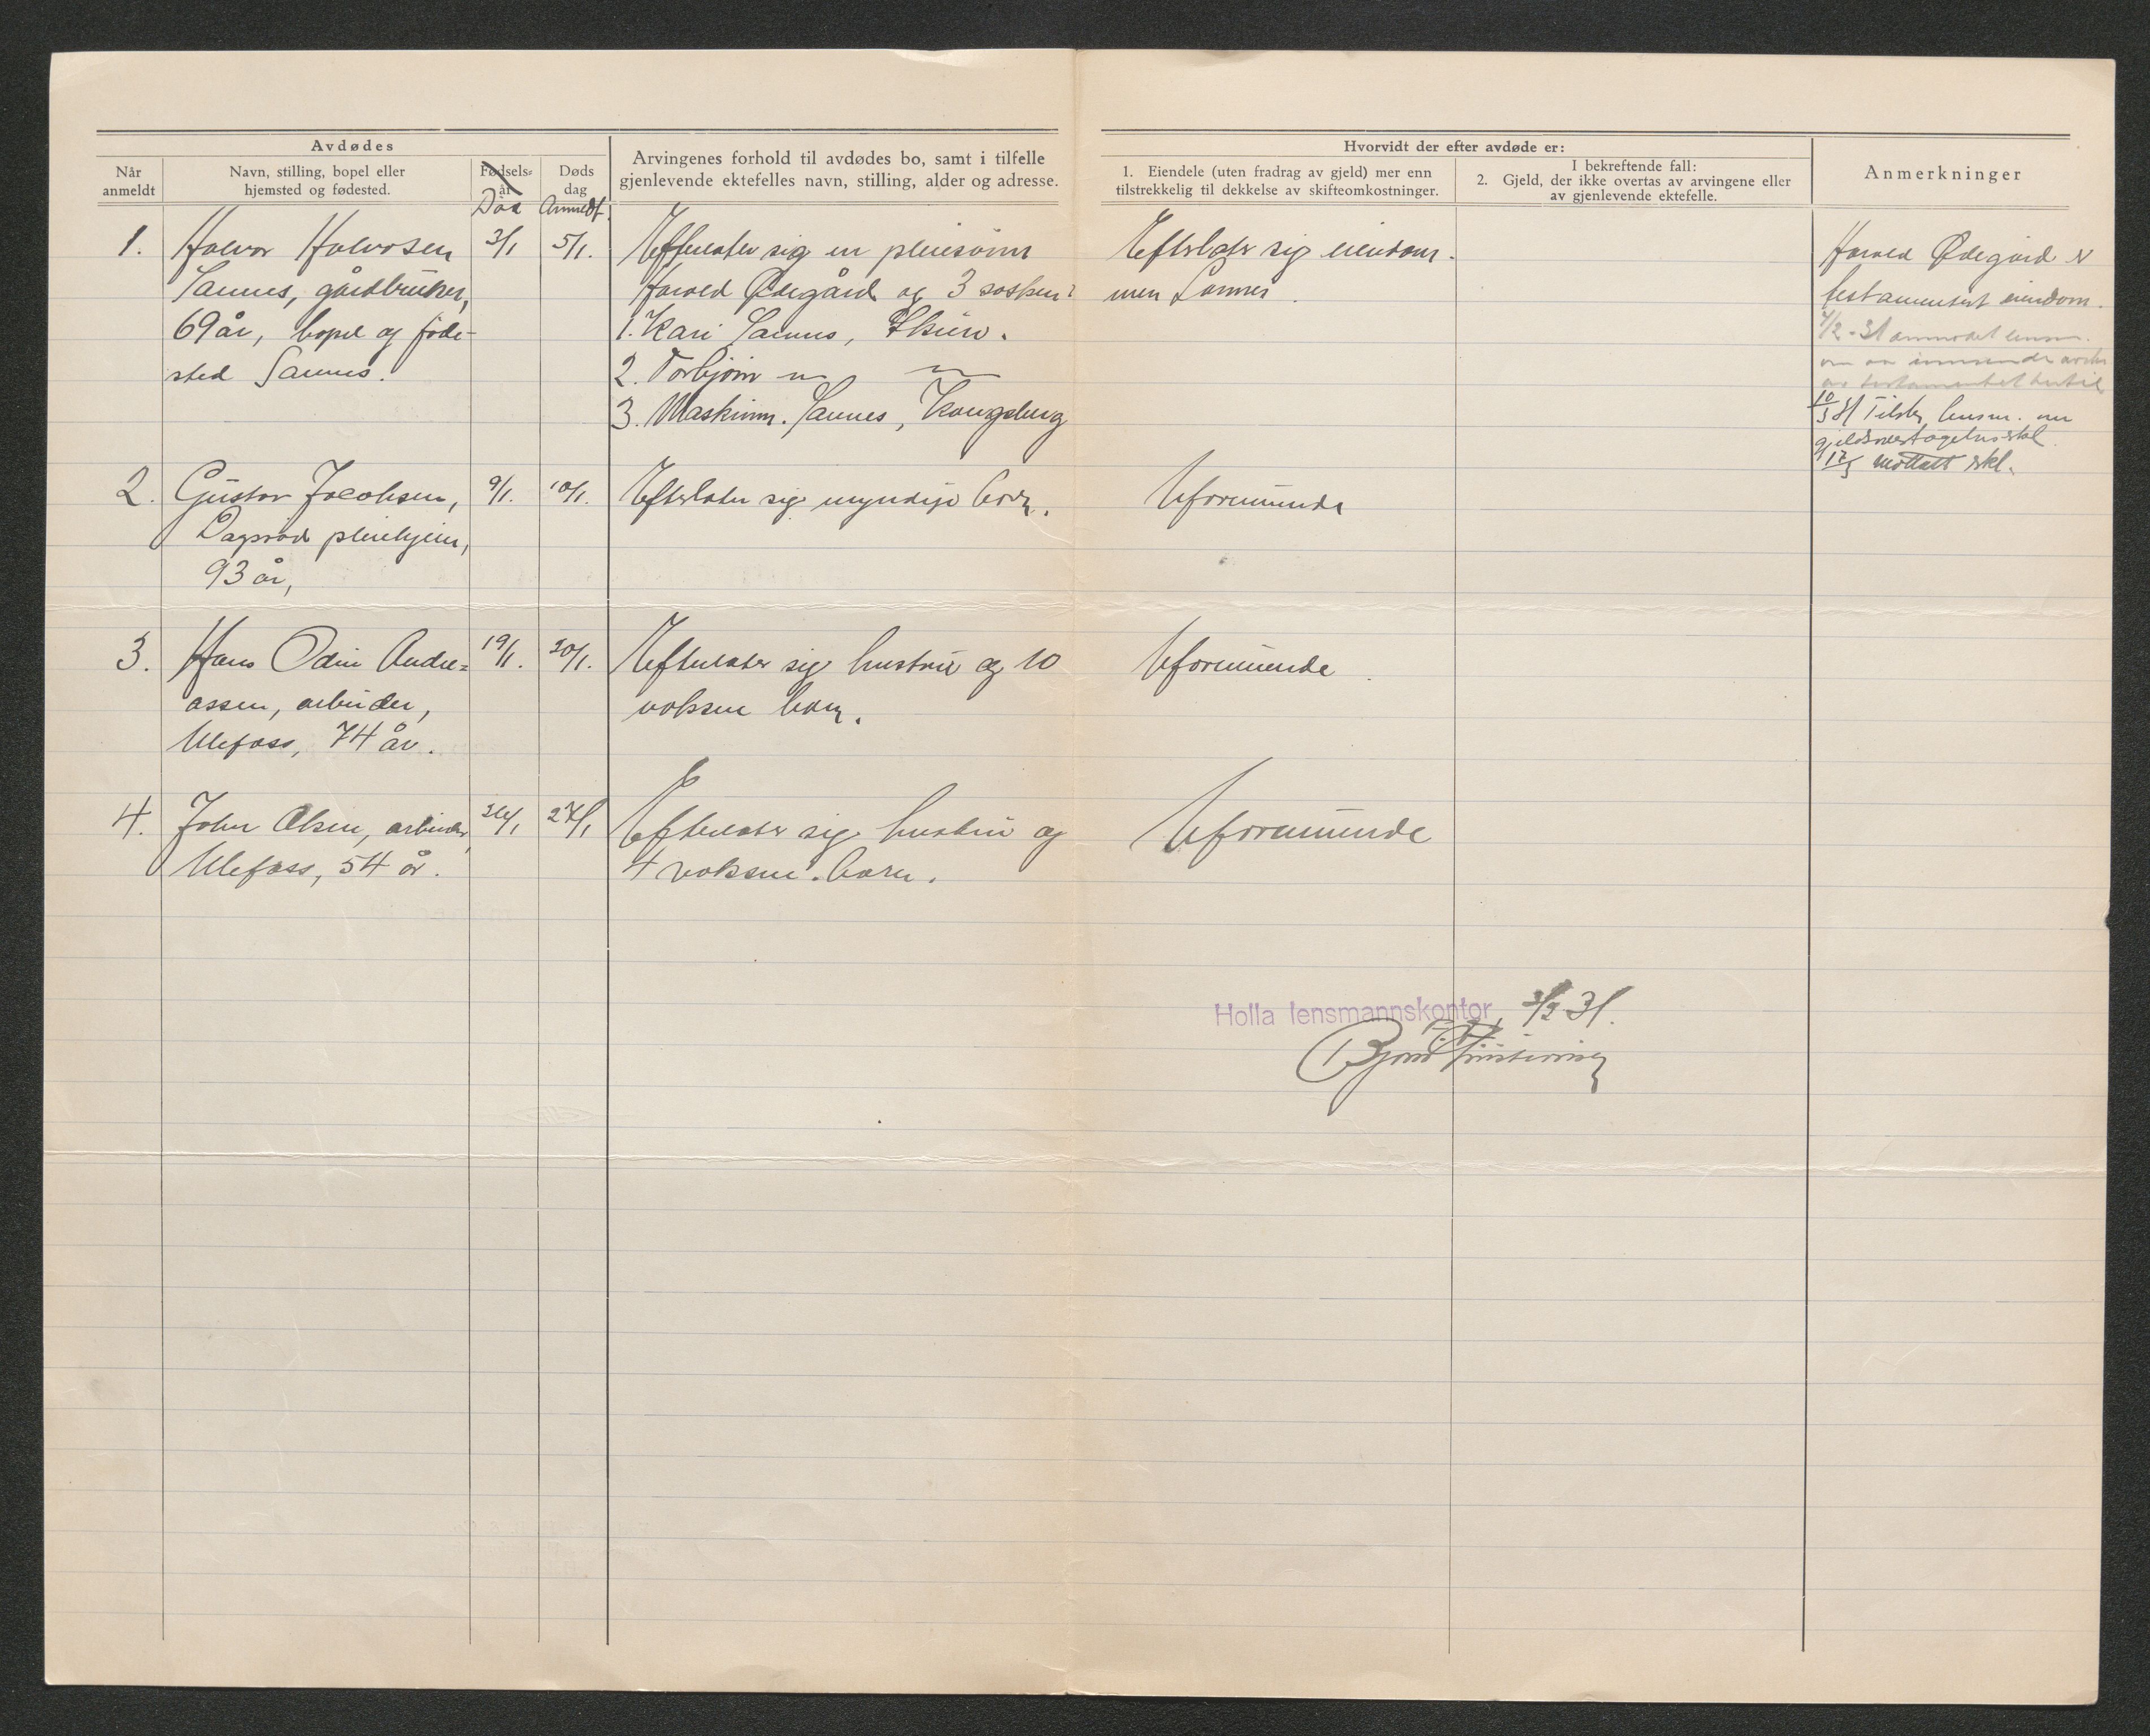 Avdødes
Når anmeldt
Navn, stilling, bopel eller hjemsted og fødested.
Fødsels-år
Død
Døds dag
Anmeldt
Arvingenes forhold til avdødes bo, samt i tilfelle
gjenlevende ektefelles navn, stilling, alder og adresse.
Hvorvidt der efter avdøde er:
1. Eiendele (uten fradrag av gjeld) mer enn
tilstrekkelig til dekkelse av skifteomkostninger.
I bekreftende fall:
2. Gjeld, der ikke overtas av arvingene eller
av gjenlevende ektefelle.
Anmerkninger
1. Halvor Halvorsen 3/1 5/1. Efterlater sig en pleiesønn Efterlater sig eiendom.
Sannes, gårdbruker, Harald Ødegård og 3 søsken:
69 år, bopel og føde- 1. Kari Sannes, Skien.
sted Sannes. 2. Torbjørn
3. Maskinm. Sannes, Kongsberg
Harald Ødegård er
testamentert eiendom.
7/2-31 anmodet lensm.
om
10/3 31 Tilskr. lensm. om
gjeldsovertagelseserkl.
17/3 mottatt erkl.
2. Gustav Jacobsen, 9/1. 10/1. Efterlater sig myndige barn. Uformuende
pleiehjem,
93 år,
3. Hans Odin Andre- 19/1. 20/1. Efterlater sig hustru og 10 Uformuende.
assen, arbeider, voksne barn.
Ulefoss, 74 år.
4. John Olsen, arbeider, 26/1 27/1 Efterlater sig hustru og Uformuende
Ulefoss, 54 år. 4 voksne barn.
Holla lensmannskontor, 3/2 31.